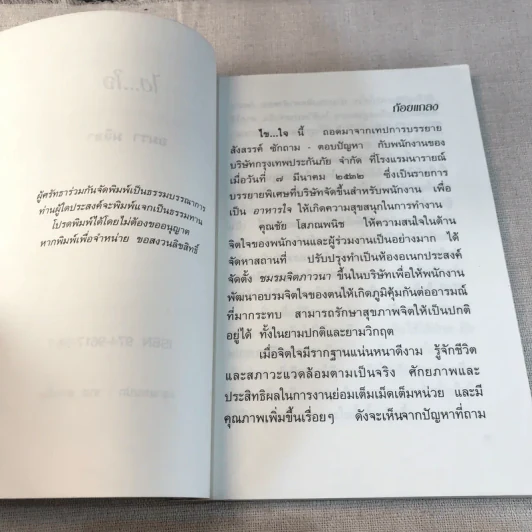 ผู้ศรัทธาร่วมกันจัดพิมพ์เป็นธรรมบรรณาการ
ท่านผู้ใดประสงค์จะพิมพ์แจกเป็นธรรมทาน
โปรดพิมพ์ได้โดยไม่ต้องขออนุญาต
หากพิมพ์เพื่อจำหน่าย ขอสงวนลิขสิทธิ์
ถ้อยแถลง
ไข...ใจ นี้ ถอดมาจากเทปการบรรยาย
สังสรรค์ ซักถาม - ตอบปัญหา กับพนักงานของ
บริษัทกรุงเทพประกันภัย จำกัด ที่โรงแรมนารายณ์
เมื่อวันที่ ๗ มีนาคม ๒๕๓๒ ซึ่งเป็นรายการ
บรรยายพิเศษที่บริษัทจัดขึ้นสำหรับพนักงาน เพื่อ
เป็น อาหารใจ ให้เกิดความสุขสนุกในการทำงาน
คุณชัย โสภณพนิช ให้ความสนใจในด้าน
จิตใจของพนักงานและผู้ร่วมงานเป็นอย่างมาก ได้
จัดหาสถานที่ ปรับปรุงทำเป็นห้องอเนกประสงค์
จัดตั้ง ชมรมจิตภาวนา ขึ้นในบริษัทเพื่อให้พนักงาน
พัฒนาอบรมจิตใจของตนให้เกิดภูมิคุ้มกันต่ออารมณ์
ที่มากระทบ สามารถรักษาสุขภาพจิตให้เป็นปกติ
อยู่ได้ ทั้งในยามปกติและยามวิกฤต
เมื่อจิตใจมีรากฐานแน่นหนาดีงาม รู้จักชีวิต
และสภาวะแวดล้อมตามเป็นจริง ศักยภาพและ
ประสิทธิผลในการงานย่อมเต็มเม็ดเต็มหน่วย และมี
คุณภาพเพิ่มขึ้นเรื่อยๆ ดังจะเห็นจากปัญหาที่ถาม